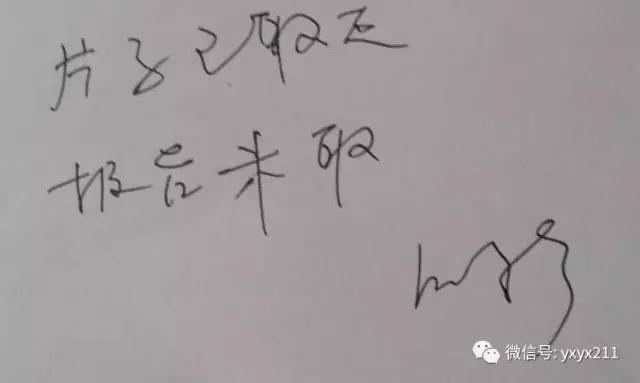 片子已取走
报告未取
微信号: yxyx211